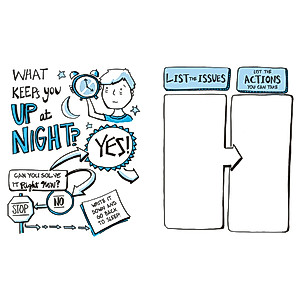 WHAT
KEEPS YOU
UP at
NIGHT?
YES!
CAN YOU SOLVE
IT Right NOW?
STOP
NO
WRITE IT
DOWN AND GO
BACK TO
SLEEP!
LIST THE ISSUES
LIST THE
ACTIONS
YOU CAN TAKE